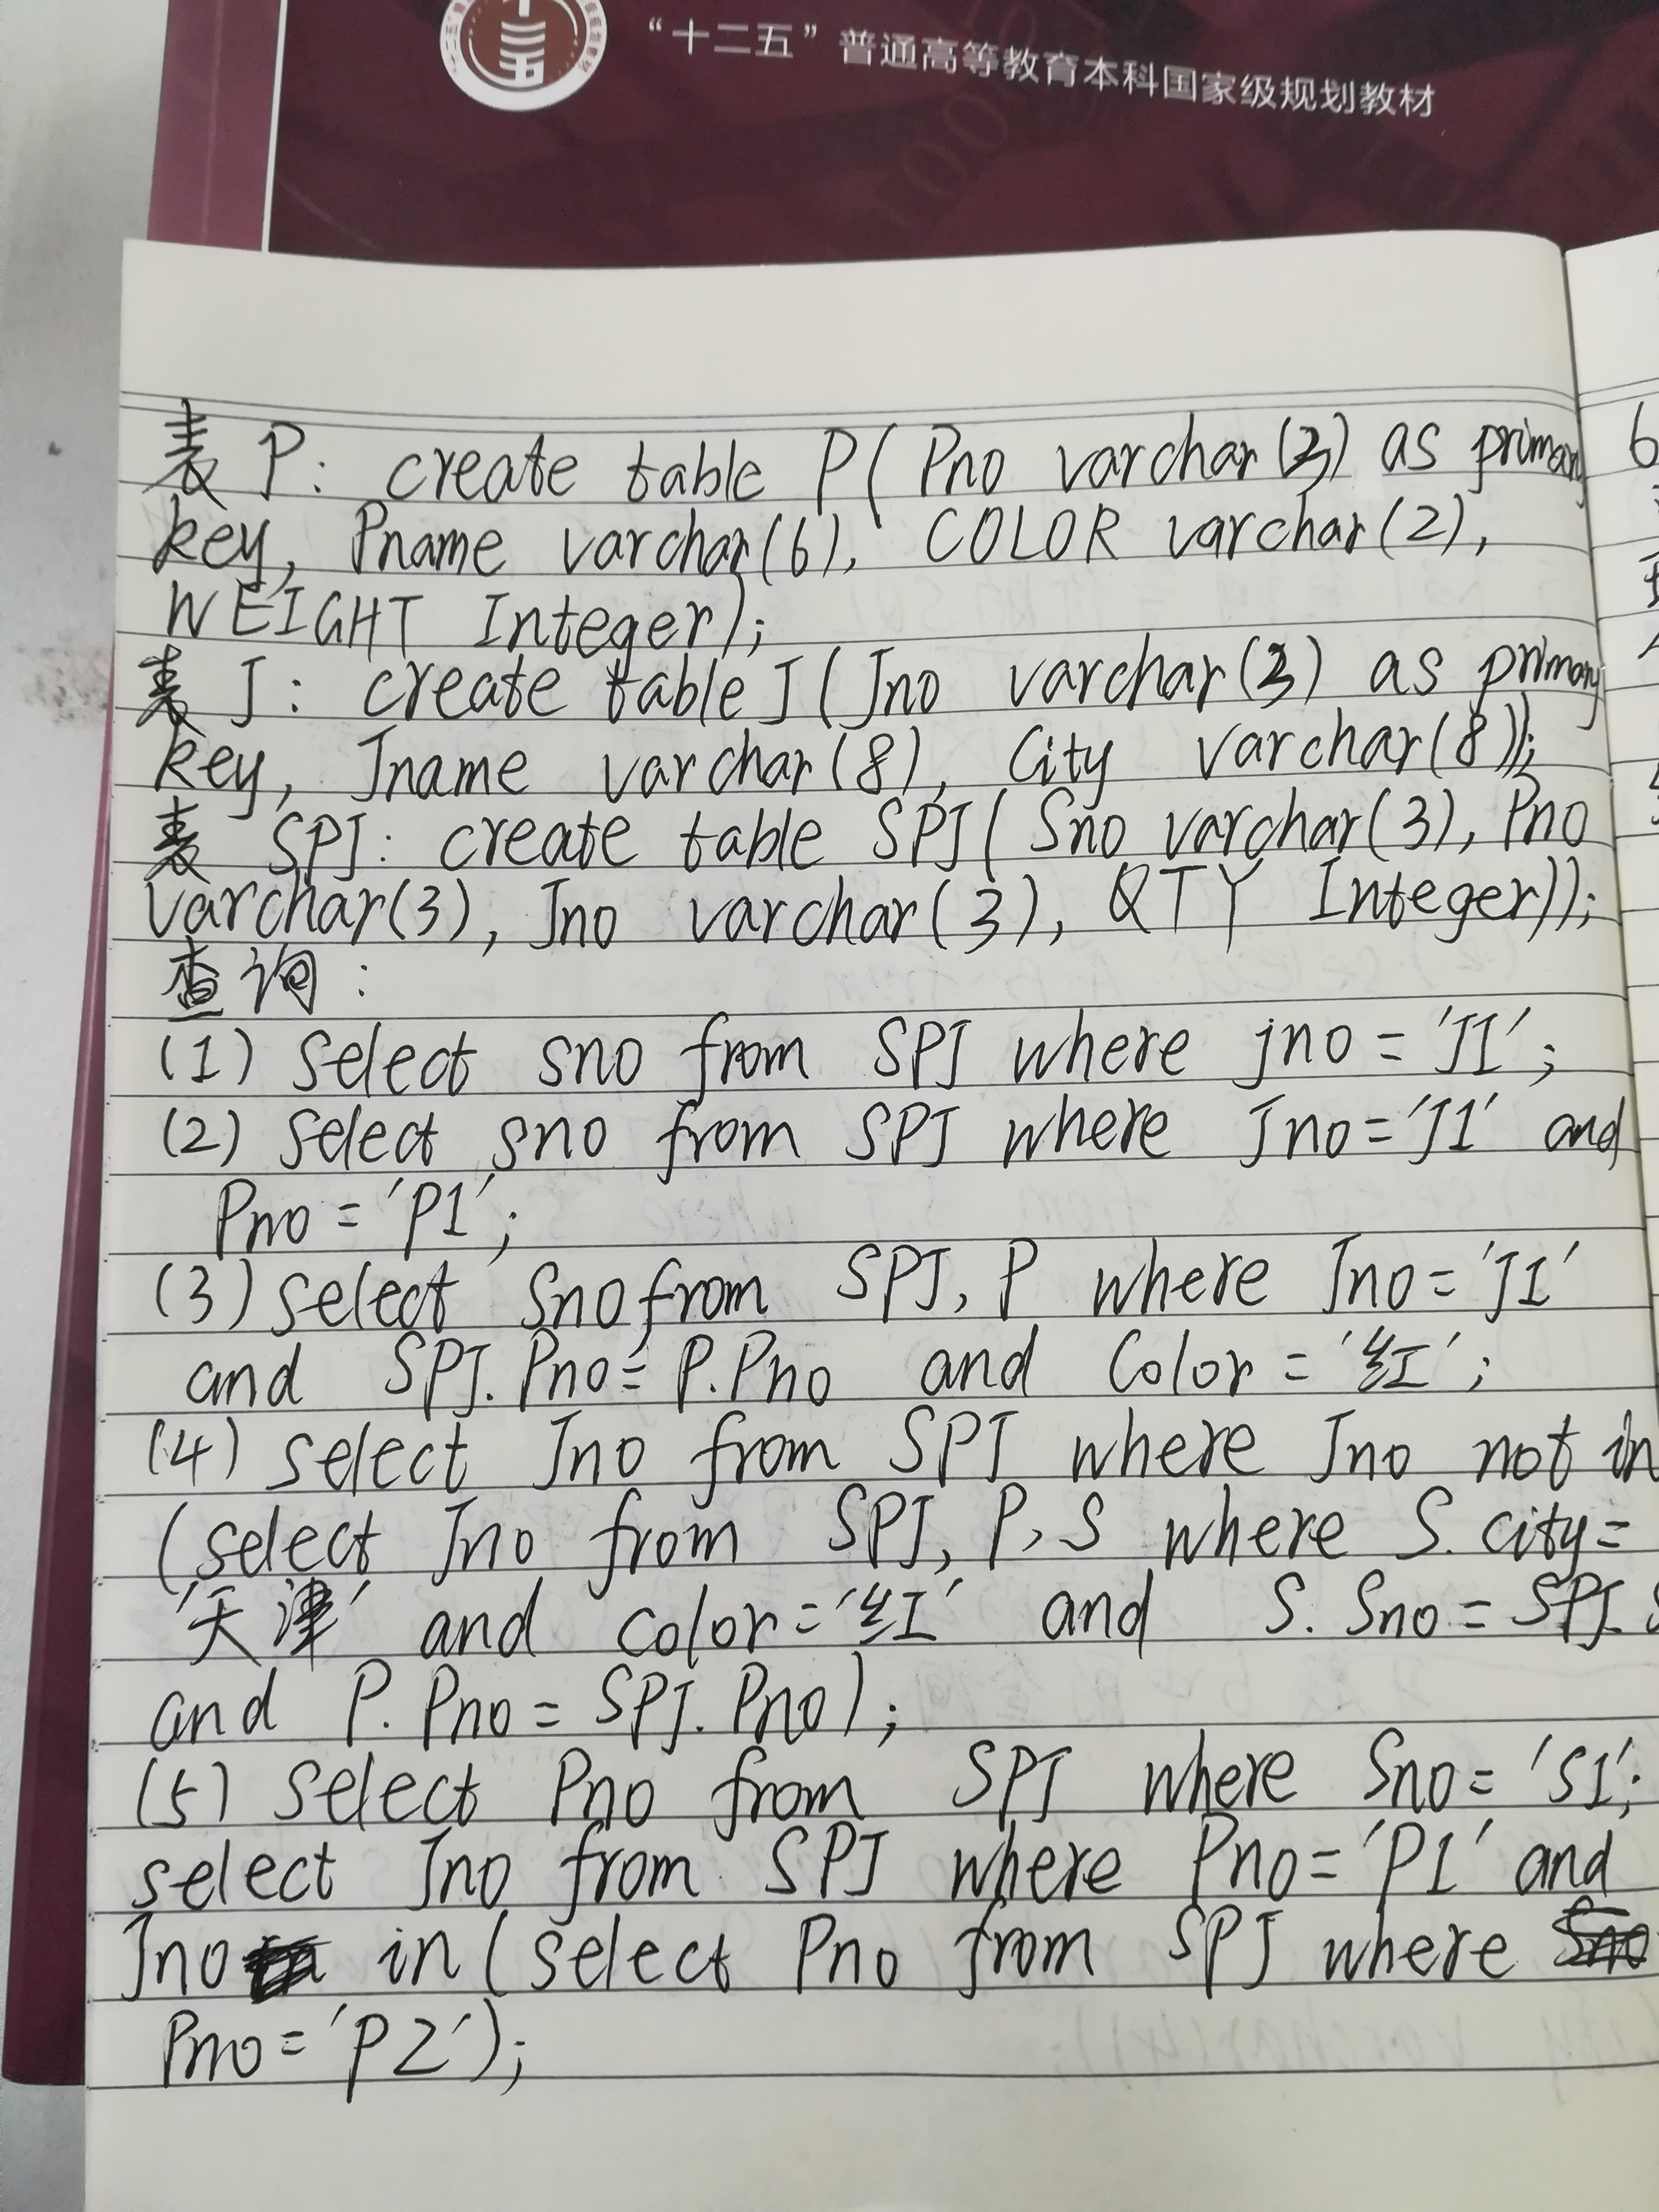 “十二五”普通高等教育本科国家级规划教材
表P: create table P( Pno varchar(3) as primary
key, Pname varchar(6), COLOR varchar(2),
WEIGHT Integer);
表J: create table J(Jno varchar(3) as primary
key, Jname varchar(8), City varchar(8));
表 SPJ: create table SPJ( Sno varchar(3), Pno
varchar(3), Jno varchar(3), QTY Integer));
查询:
(1) select sno from SPJ where jno = 'J1';
(2) select sno from SPJ where Jno='J1' and
Pno = 'P1';
(3) select Sno from SPJ, P where Jno='J1'
and SPJ.Pno=P.Pno and Color='红';
(4) select Jno from SPJ where Jno not in
(select Jno from SPJ, P, S where S.city=
'天津' and color='红' and S.Sno=SPJ.S
and P.Pno=SPJ.Pno);
(5) select Pno from SPJ where Sno='S1';
select Jno from SPJ where Pno='P1' and
Jno in (select Pno from SPJ where
Pno='P2');
6